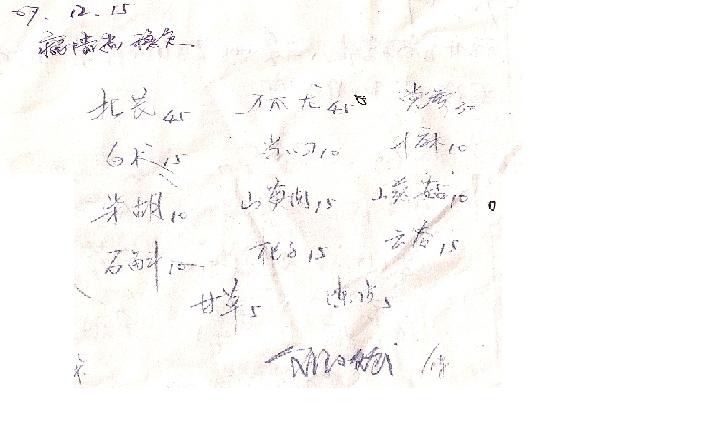 69.12.15
病情尚稳定
北芪45 45 党参30
白术15 当归10 升麻10
柴胡10 山萸肉15 山慈菇10
石斛10 杞子15 云苓15
甘草5 陈皮5